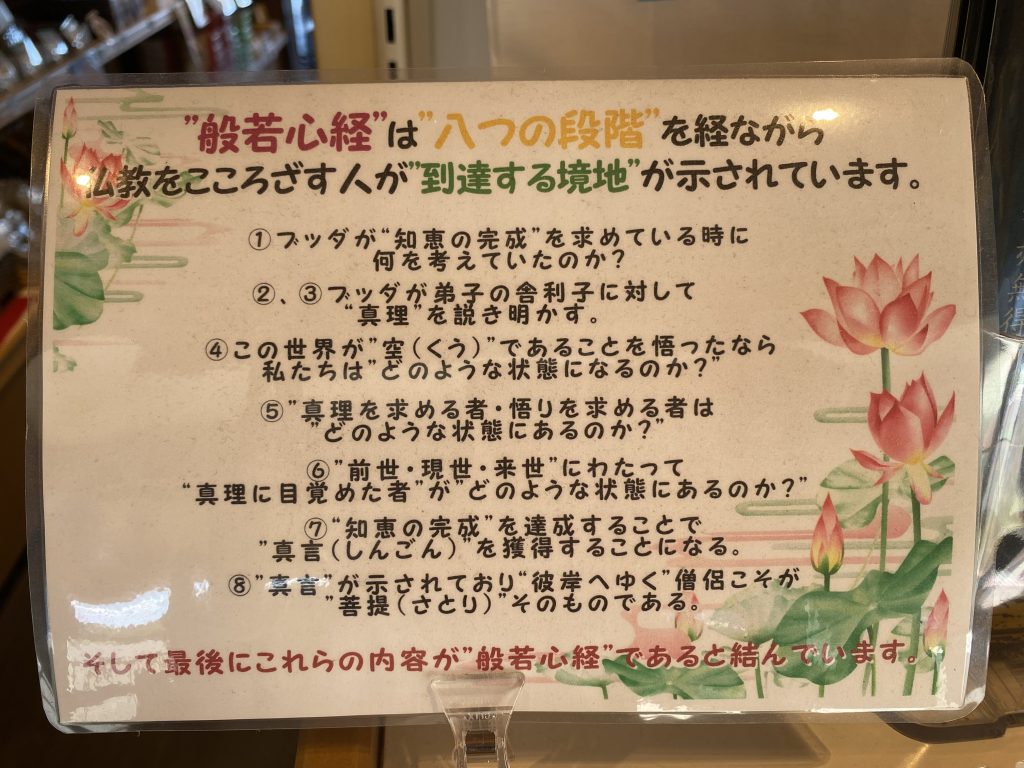 ”般若心経”は”八つの段階”を経ながら
仏教をこころざす人が”到達する境地”が示されています。
①ブッダが“知恵の完成”を求めている時に
何を考えていたのか?
②、③ブッダが弟子の舎利子に対して
“真理”を説き明かす。
④この世界が”空(くう)”であることを悟ったなら
私たちは”どのような状態になるのか?”
⑤”真理を求める者・悟りを求める者は
”どのような状態にあるのか?”
⑥”前世・現世・来世”にわたって
“真理に目覚めた者”が”どのような状態にあるのか?”
⑦“知恵の完成”を達成することで
”真言(しんごん)”を獲得することになる。
⑧”真言”が示されており“彼岸へゆく”僧侶こそが
”菩提(さとり)”そのものである。
そして最後にこれらの内容が”般若心経”であると結んでいます。